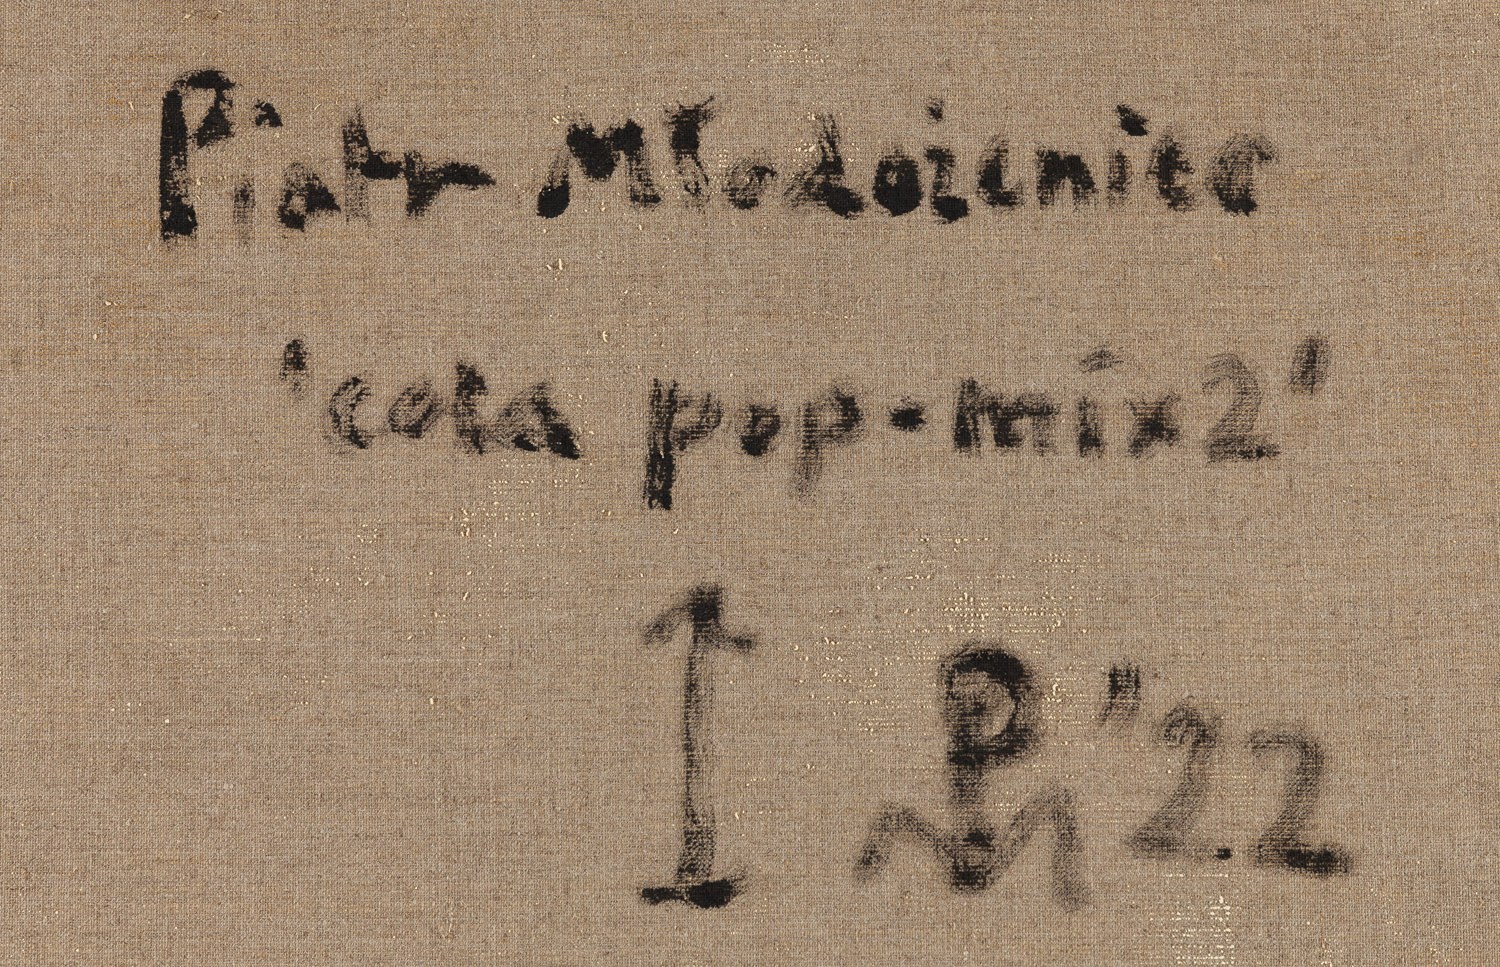 Piotr Młodożeniec
'cola pop-mix2'
PM "22